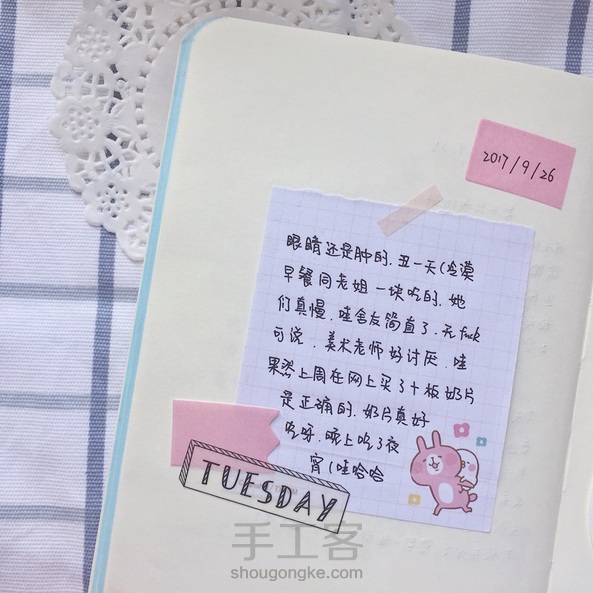 2017/9/26
眼睛还是肿的.丑一天(冷漠
早餐同老姐一块吃的.她
们真慢.哇舍友简直了.无fuck
可说.美术老师好讨厌.哇
果然上周在网上买了十板奶片
是正确的.奶片真好
吃呀.晚上吃了夜
宵(哇哈哈
TUESDAY
手工客
shougongke.com